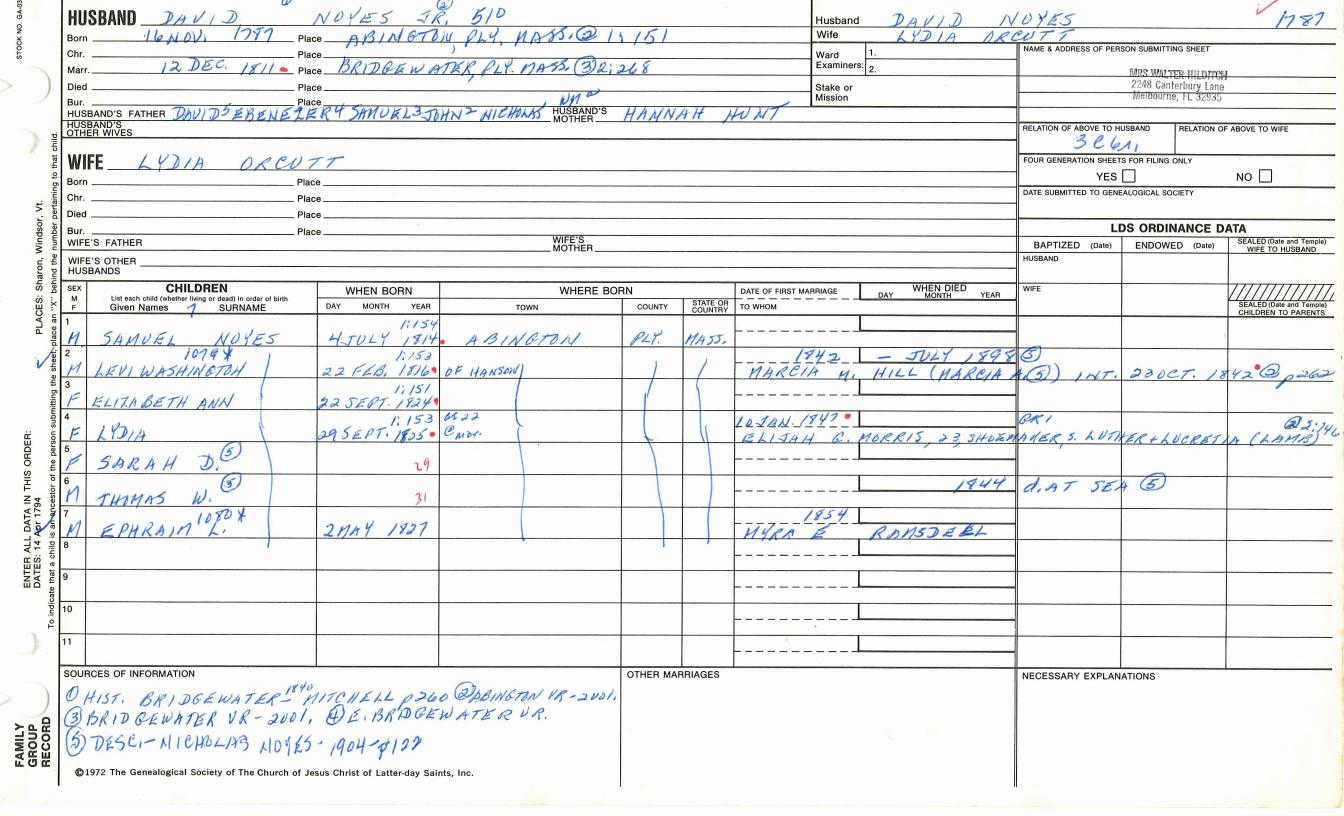 HUSBAND DAVID NOYES JR. 510
Born 16 NOV. 1787 Place ABINGTON, PLY, MASS. ② 1:151
Chr. Place
Marr. 12 DEC. 1811 Place BRIDGEWATER, PLY. MASS. ③ 2:268
Died Place
Bur. Place
HUSBAND'S FATHER DAVID5 EBENEZER4 SAMUEL3 JOHN2 NICHOLAS HUSBAND'S MOTHER HANNAH HUNT
HUSBAND'S OTHER WIVES
WIFE LYDIA ORCUTT
Born Place
Chr. Place
Died Place
Bur. Place
WIFE'S FATHER WIFE'S MOTHER
WIFE'S OTHER HUSBANDS
Husband DAVID NOYES 1787
Wife LYDIA ORCUTT
Ward Examiners: 1. 2.
Stake or Mission
NAME & ADDRESS OF PERSON SUBMITTING SHEET
MRS WALTER HILDITCH
2248 Canterbury Lane
Melbourne, FL 32935
RELATION OF ABOVE TO HUSBAND RELATION OF ABOVE TO WIFE
FOUR GENERATION SHEETS FOR FILING ONLY
YES NO
DATE SUBMITTED TO GENEALOGICAL SOCIETY
LDS ORDINANCE DATA
BAPTIZED (Date) ENDOWED (Date) SEALED (Date and Temple) WIFE TO HUSBAND
HUSBAND
WIFE
SEALED (Date and Temple) CHILDREN TO PARENTS
SEX M F CHILDREN WHEN BORN WHERE BORN DATE OF FIRST MARRIAGE WHEN DIED
List each child (whether living or dead) in order of birth
Given Names 7 SURNAME DAY MONTH YEAR TOWN COUNTY STATE OR COUNTRY TO WHOM DAY MONTH YEAR
1 1:154
M SAMUEL NOYES 4 JULY 1814 ABINGTON PLY. MASS.
2 1079* 1:153 1842 – JULY 1898 ⑤
M LEVI WASHINGTON 22 FEB. 1816 OF HANSON MARCIA M. HILL (MARCIA A ⑤) INT. 23 OCT. 1842 ② p262
3 1:151
F ELIZABETH ANN 22 SEPT. 1824
4 1:153 10 JAN. 1847 GR1 ② 2:146
F LYDIA 29 SEPT. 1825 ELIJAH G. MORRIS, 23, SHOEMAKER, S. LUTHER + LUCRETIA (LAMB)
5
F SARAH D. ⑤ 29
6
M THOMAS W. ⑤ 31 1844 d. AT SEA ⑤
7 1080* 1854
M EPHRAIM L. 2 MAY 1827 MYRA E RAMSDELL
8
9
10
11
SOURCES OF INFORMATION
① HIST. BRIDGEWATER – 1840 MITCHELL p260 ② ABINGTON VR – 2001.
③ BRIDGEWATER VR – 2001, ④ E. BRIDGEWATER VR.
⑤ DESC. – NICHOLAS NOYES – 1904 – p122
OTHER MARRIAGES
NECESSARY EXPLANATIONS
©1972 The Genealogical Society of The Church of Jesus Christ of Latter-day Saints, Inc.
FAMILY GROUP RECORD
ENTER ALL DATA IN THIS ORDER:
DATES: 14 Apr 1794
PLACES: Sharon, Windsor, Vt.
To indicate that a child is an ancestor of the person submitting the sheet, place an "X" behind the number pertaining to that child.
STOCK NO. GA-03